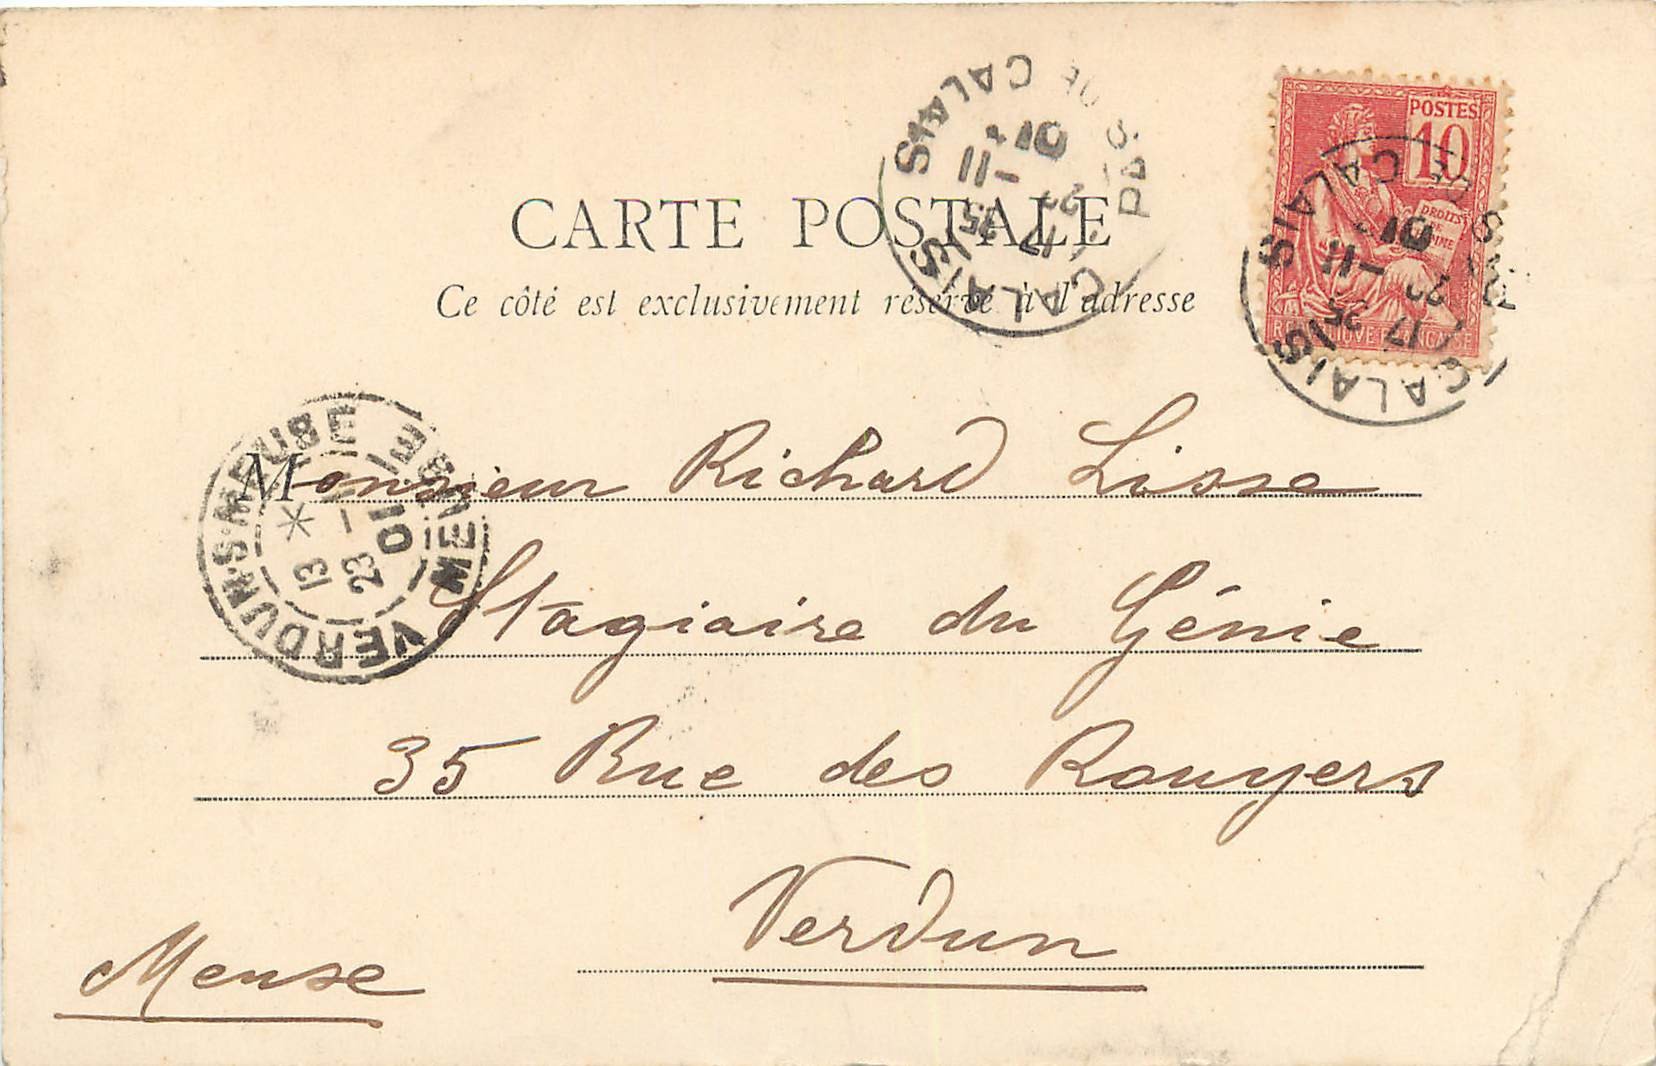 CARTE POSTALE
Ce côté est exclusivement réservé à l'adresse
POSTES
10
DROITS
CALAIS
PAS DE CALAIS
17 25
22 -11
01
CALAIS
PAS DE CALAIS
17 25
22 -11
01
VERDUN-S-MEUSE
MEUSE
13
23 -11
01
Monsieur Richard Lisse
Stagiaire du Génie
35 Rue des Rouyers
Verdun
Meuse